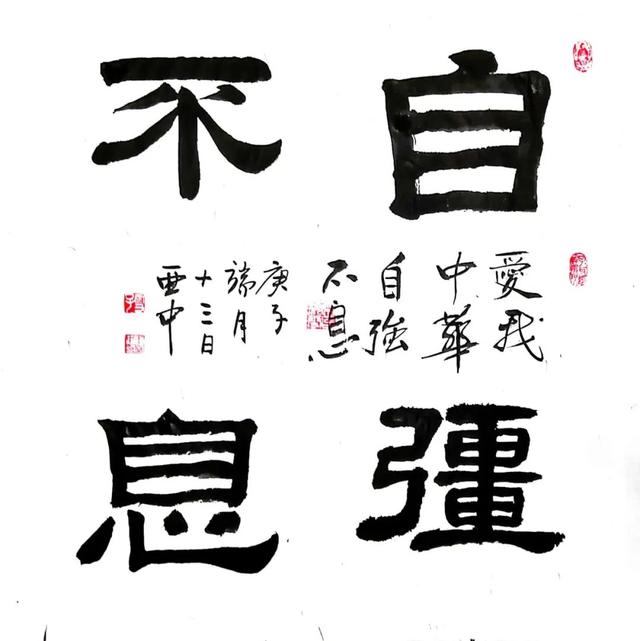 自彊
不息
愛我
中華
自強
不息
庚子
端月
十三日
亜中